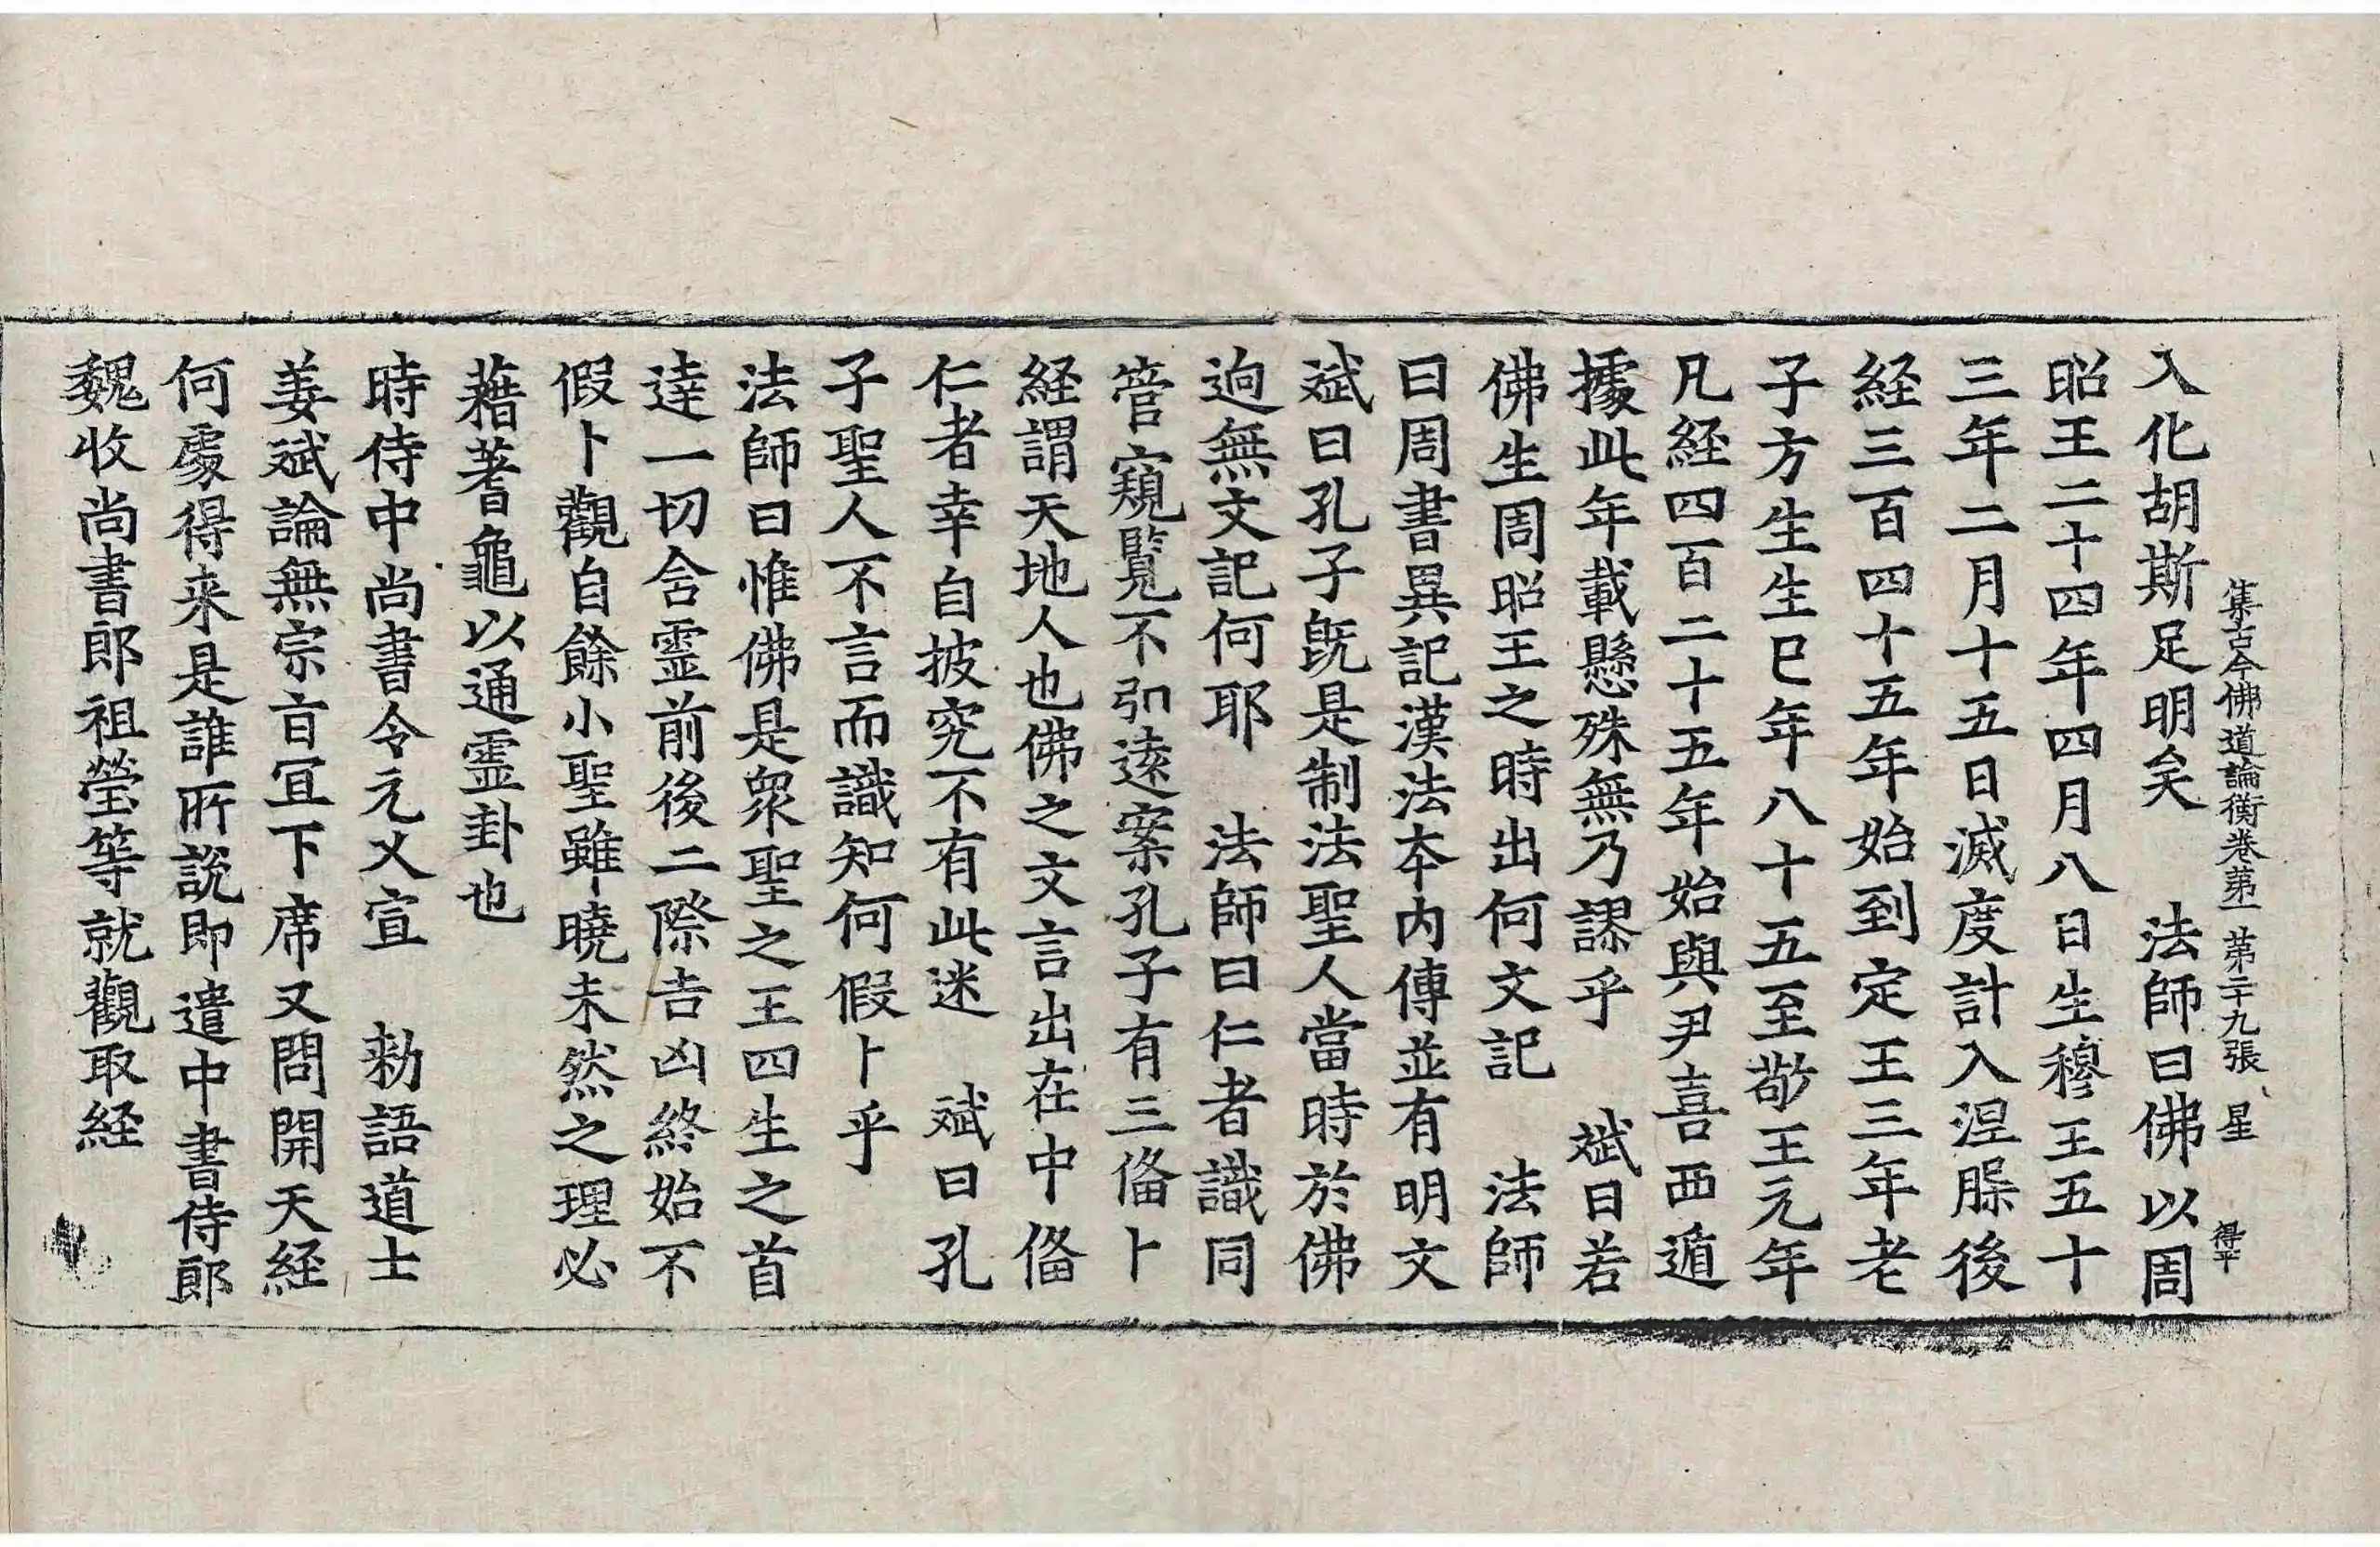 集古今佛道論衡卷苐一　苐二十九張　星　得平
入化胡斯足明矣　法師曰佛以周
昭王二十四年四月八日生穆王五十
三年二月十五日滅度計入涅槃後
経三百四十五年始到定王三年老
子方生生巳年八十五至敬王元年
凡経四百二十五年始與尹喜西遁
據此年載懸殊無乃謬乎　斌曰若
佛生周昭王之時出何文記　法師
曰周書異記漢法夲内傳並有明文
斌曰孔子旣是制法聖人當時於佛
逈無文記何耶　法師曰仁者識同
管窺覽不引遠案孔子有三俻卜
経謂天地人也佛之文言出在中俻
仁者幸自披究不有此迷　斌曰孔
子聖人不言而識知何假卜乎
法師曰惟佛是衆聖之王四生之首
達一切含霊前後二際吉凶終始不
假卜觀自餘小聖雖曉未然之理必
藉蓍龜以通霊卦也
時侍中尚書令元乂宣　勑語道士
姜斌論無宗旨冝下席又問開天経
何處得来是誰所說即遣中書侍郎
魏收尚書郎祖瑩等就觀取経